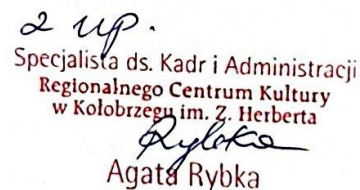 z up.
Specjalista ds. Kadr i Administracji
Regionalnego Centrum Kultury
w Kołobrzegu im. Z. Herberta
Rybka
Agata Rybka